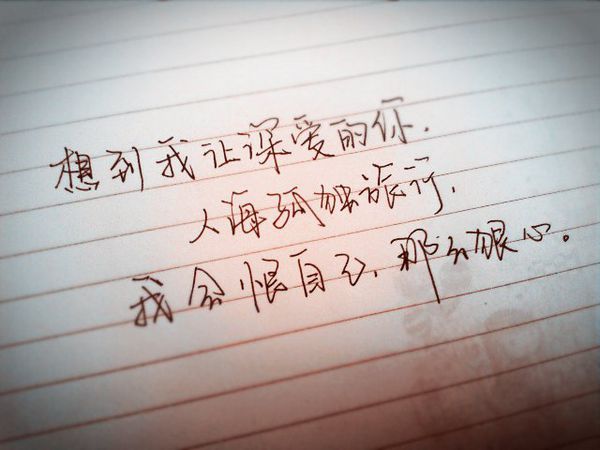 想到我让深爱的你.
人海孤独旅行.
我会恨自己.那么狠心。